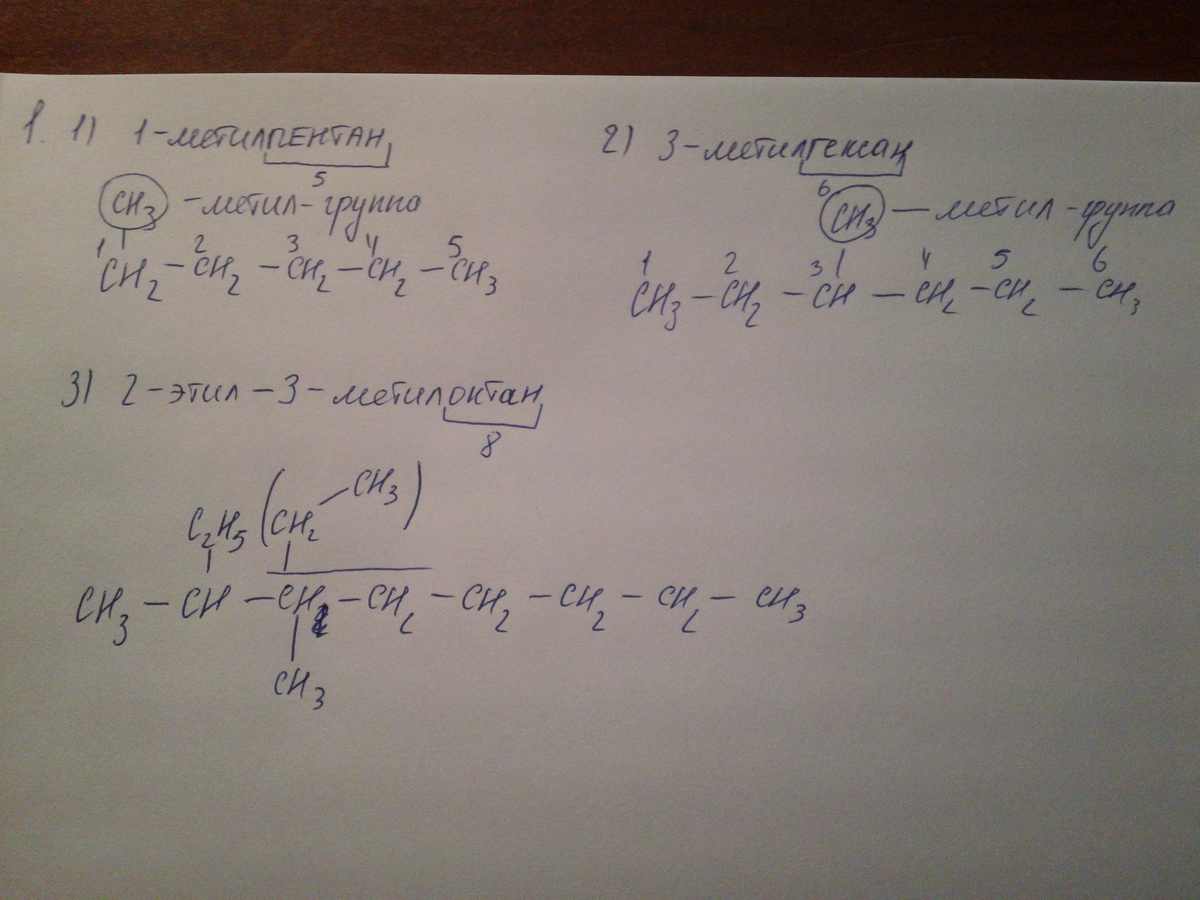 1. 1) 1-метилПЕНТАН
5
CH3 - метил-группа
1 2 3 4 5
CH2 - CH2 - CH2 - CH2 - CH3
2) 3-метилгексан
6
CH3 — метил-группа
1 2 3 4 5 6
CH3 - CH2 - CH - CH2 - CH2 - CH3
3) 2-этил-3-метилоктан
8
CH3
C2H5 (CH2 )
CH3 - CH - CH - CH2 - CH2 - CH2 - CH2 - CH3
CH3